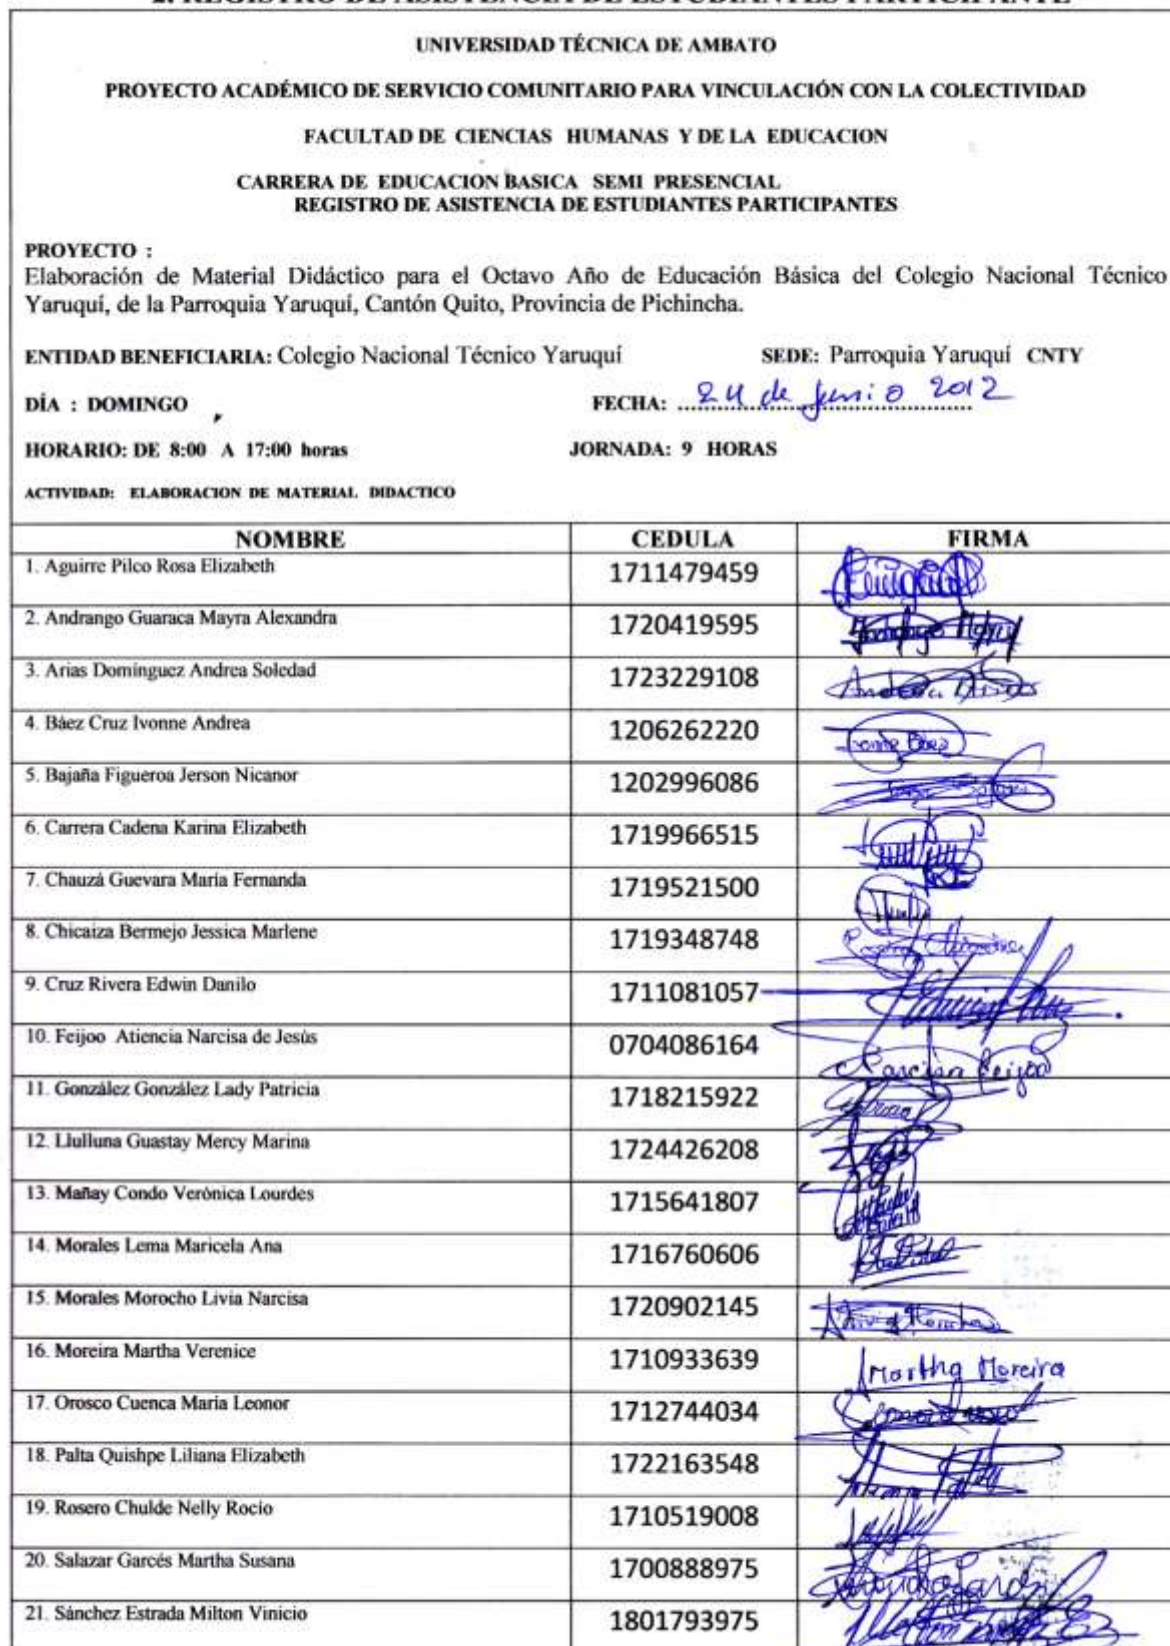 2. REGISTRO DE ASISTENCIA DE ESTUDIANTES PARTICIPANTE
UNIVERSIDAD TÉCNICA DE AMBATO
PROYECTO ACADÉMICO DE SERVICIO COMUNITARIO PARA VINCULACIÓN CON LA COLECTIVIDAD
FACULTAD DE CIENCIAS HUMANAS Y DE LA EDUCACION
CARRERA DE EDUCACION BASICA SEMI PRESENCIAL
REGISTRO DE ASISTENCIA DE ESTUDIANTES PARTICIPANTES
PROYECTO :
Elaboración de Material Didáctico para el Octavo Año de Educación Básica del Colegio Nacional Técnico
Yaruquí, de la Parroquia Yaruquí, Cantón Quito, Provincia de Pichincha.
ENTIDAD BENEFICIARIA: Colegio Nacional Técnico Yaruquí SEDE: Parroquia Yaruquí CNTY
DÍA : DOMINGO FECHA: 24 de junio 2012
HORARIO: DE 8:00 A 17:00 horas JORNADA: 9 HORAS
ACTIVIDAD: ELABORACION DE MATERIAL DIDACTICO
NOMBRE CEDULA FIRMA
1. Aguirre Pilco Rosa Elizabeth 1711479459
2. Andrango Guaraca Mayra Alexandra 1720419595
3. Arias Domínguez Andrea Soledad 1723229108 Andrea Arias
4. Báez Cruz Ivonne Andrea 1206262220 Ivonne Báez
5. Bajaña Figueroa Jerson Nicanor 1202996086
6. Carrera Cadena Karina Elizabeth 1719966515
7. Chauzá Guevara María Fernanda 1719521500
8. Chicaiza Bermejo Jessica Marlene 1719348748
9. Cruz Rivera Edwin Danilo 1711081057
10. Feijoo Atiencia Narcisa de Jesús 0704086164 Narcisa Feijoo
11. González González Lady Patricia 1718215922
12. Llulluna Guastay Mercy Marina 1724426208
13. Mañay Condo Verónica Lourdes 1715641807
14. Morales Lema Maricela Ana 1716760606
15. Morales Morocho Livia Narcisa 1720902145
16. Moreira Martha Verenice 1710933639 Martha Moreira
17. Orosco Cuenca María Leonor 1712744034
18. Palta Quishpe Liliana Elizabeth 1722163548
19. Rosero Chulde Nelly Rocío 1710519008
20. Salazar Garcés Martha Susana 1700888975
21. Sánchez Estrada Milton Vinicio 1801793975